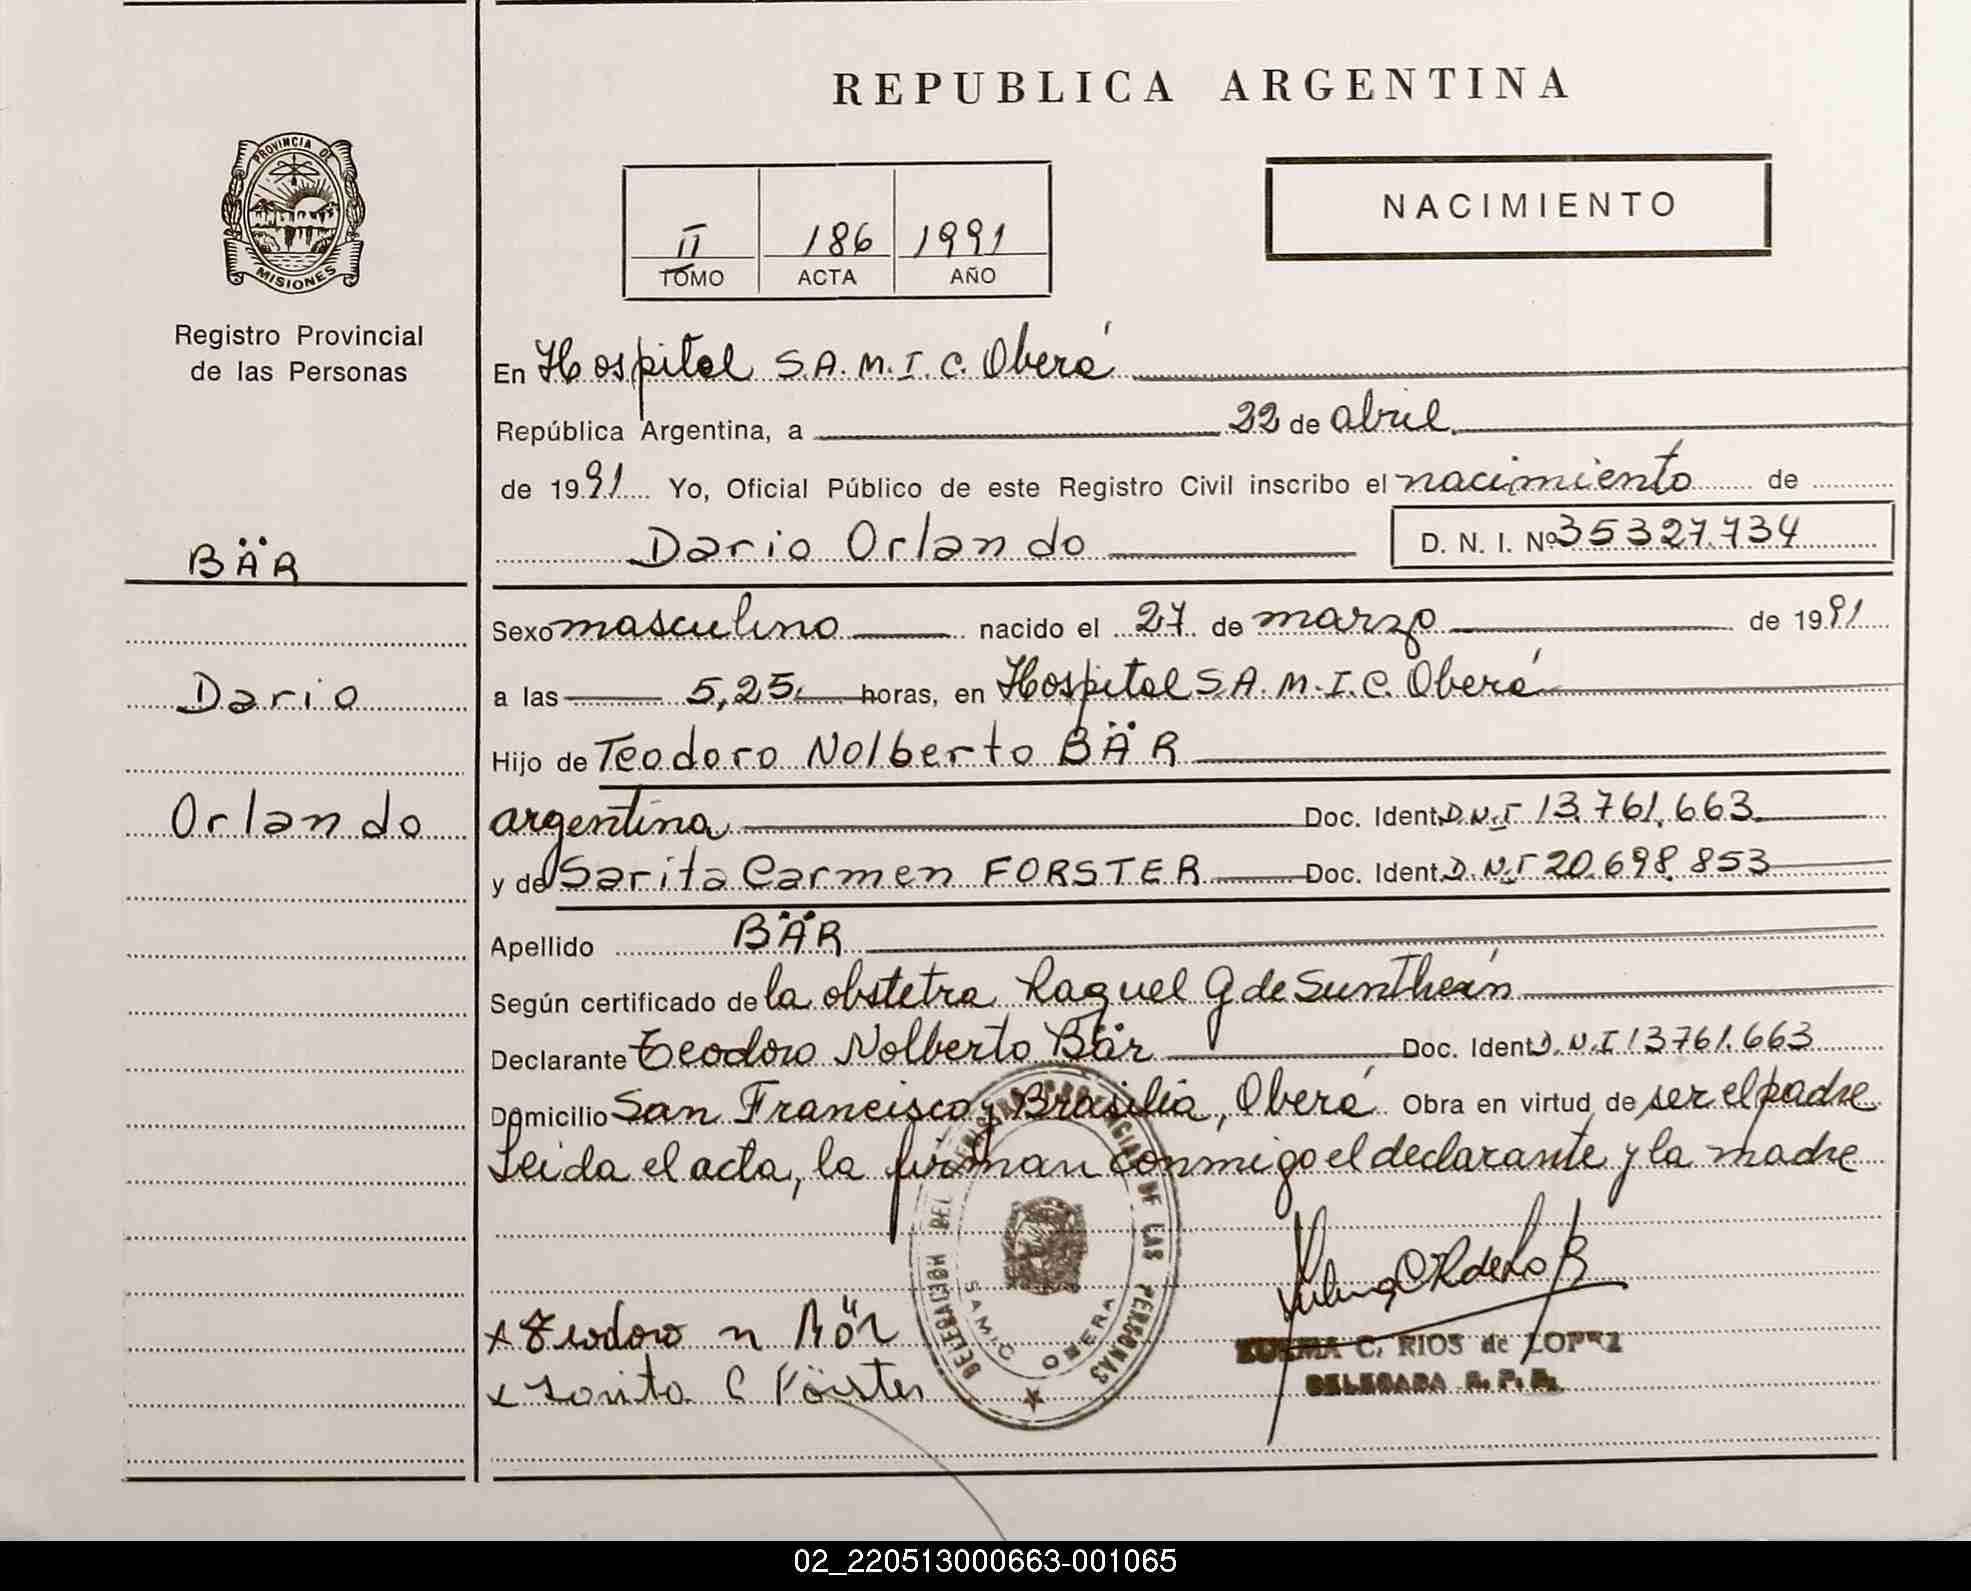 REPUBLICA ARGENTINA
PROVINCIA DE
MISIONES
Registro Provincial
de las Personas
II 186 1991
TOMO ACTA AÑO
NACIMIENTO
BÄR
Dario
Orlando
En Hospital S.A.M.I.C. Oberá
República Argentina, a 22 de abril
de 1991 Yo, Oficial Público de este Registro Civil inscribo el nacimiento de
Dario Orlando D. N. I. Nº 35327.734
Sexo masculino nacido el 27 de marzo de 1991
a las 5,25 horas, en Hospital S.A.M.I.C. Oberá
Hijo de Teodoro Nolberto BÄR
argentina Doc. Ident. D.N.I 13.761.663
y de Sarita Carmen FORSTER Doc. Ident. D.N.I 20.698.853
Apellido BÄR
Según certificado de la obstetra Raquel G de
Declarante Teodoro Nolberto Bär Doc. Ident. D.N.I 13761.663
Domicilio San Francisco y Brasilia, Oberá Obra en virtud de ser el padre
Leida el acta, la firman conmigo el declarante y la madre
DE LAS PERSONAS
SAMIC OBERA
x Teodoro n Bär
x Sarita C Förster
ZULMA C. RIOS de LOPEZ
DELEGADA R. P. P.
02_220513000663-001065